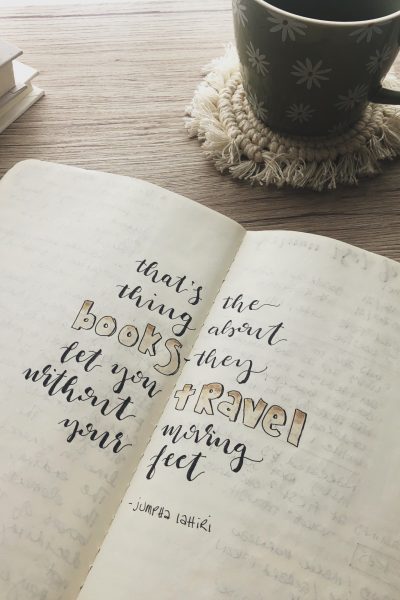 that's the
thing about
books-they
let you travel
without moving
your feet
-Jumpha Lahiri